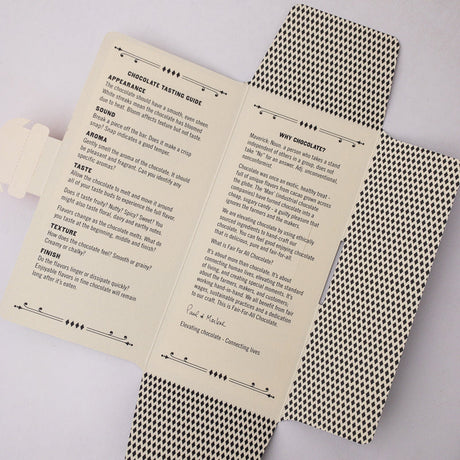 CHOCOLATE TASTING GUIDE
APPEARANCE
The chocolate should have a smooth, even sheen
White streaks mean the chocolate has bloomed
due to heat. Bloom affects texture but not taste.
SOUND
Break a piece off the bar. Does it make a crisp
snap? Snap indicates a good temper.
AROMA
Gently smell the aroma of the chocolate. It should
be pleasant and fragrant. Can you identify any
specific aromas?
TASTE
Allow the chocolate to melt and move it around
all of your taste buds to experience the full flavor.
Does it taste fruity? Nutty? Spicy? Sweet? You
might also taste floral, citrus or earthy notes.
Flavors change as the chocolate melts. What do
you taste at the beginning, middle and finish?
TEXTURE
How does the chocolate feel? Smooth or grainy?
Creamy or chalky?
FINISH
Do the flavors linger or dissipate quickly?
Enjoyable flavors in fine chocolate will remain
long after it's eaten.
WHY CHOCOLATE?
Maverick: Noun. a person who takes a stand
independent of others in a group. one who
take "No" for an answer. Adj. unconventional,
nonconformist.
Chocolate was once an exotic, healthy treat -
full of unique flavors from cacao grown across
the globe. The War: Industrial chocolate
companies have turned chocolate into a
cheap, sugary candy - a guilty pleasure that
ignores the farmers and the makers.
We are elevating chocolate by using ethically
sourced ingredients to hand-craft our
chocolate. You can feel good enjoying chocolate
that is delicious, pure and fair-for-all.
What is Fair For All Chocolate?
It's about more than chocolate. It's about
connecting human lives, elevating the standard
of living, and creating special moments. It's
about the farmers, makers, and customers;
working hand-in-hand. We all benefit from fair
wages, sustainable practices and a dedication
to our craft. This is Fair-For-All Chocolate.
Elevating chocolate - Connecting lives